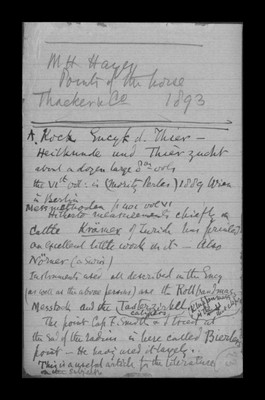 M H Hayes
Points of the horse
Thacker & Co 1893
A. Koch Encyk d. Thier-
Heilkunde und Thierzucht
about a dozen large 8vo vols
the VIth vol: is (Moritz Perles) 1889 Wien
in Berlin
Messmethoden p vol VI
Hitherto measurements chiefly on
cattle Krämer of Zurich has printed
an excellent little work on it — Also
Nörner (a Swiss)
Instruments used all described in the Ency
(as well as the above persons) are the Roll bandmass
Messtock and the Tasterzirkel
calipers
The point Capt F. Smith &
the end of the radius is here called
point — He says used it largely.
This is a useful article for the literature
on the subject.